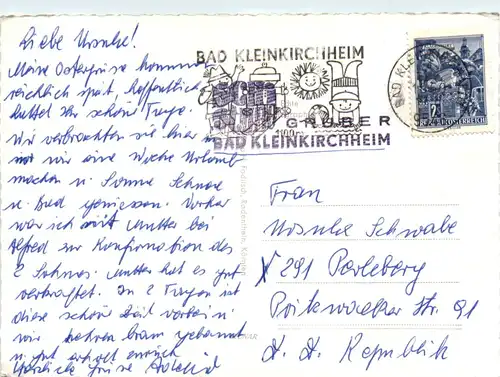 Liebe Ursula!
Meine Ostergrüsse kommen
reichlich spät, hoffentlich
hattet Ihr schöne Tage.
Wir verbrachten sie hier in
wo wir eine Woche Urlaub
machen u. Sonne Schnee
u. Bad geniessen. Vorher
war ich mit Mutter bei
Alfred zur Konfirmation des
2. Sohnes. Mutter hat es gut
verkraftet. In 2 Tagen ist
diese schöne Zeit vorbei u.
wir kehren braun gebrannt
u. gut erholt zurück
Herzliche Grüsse
BAD KLEINKIRCHHEIM
GRUBER
BAD KLEINKIRCHHEIM
BAD KLEIN
9546
S 2
REPUBLIK ÖSTERREICH
Frau
Ursula Schwabe
X 291 Perleberg
Pritzwalker Str. 91
D. D. Republik